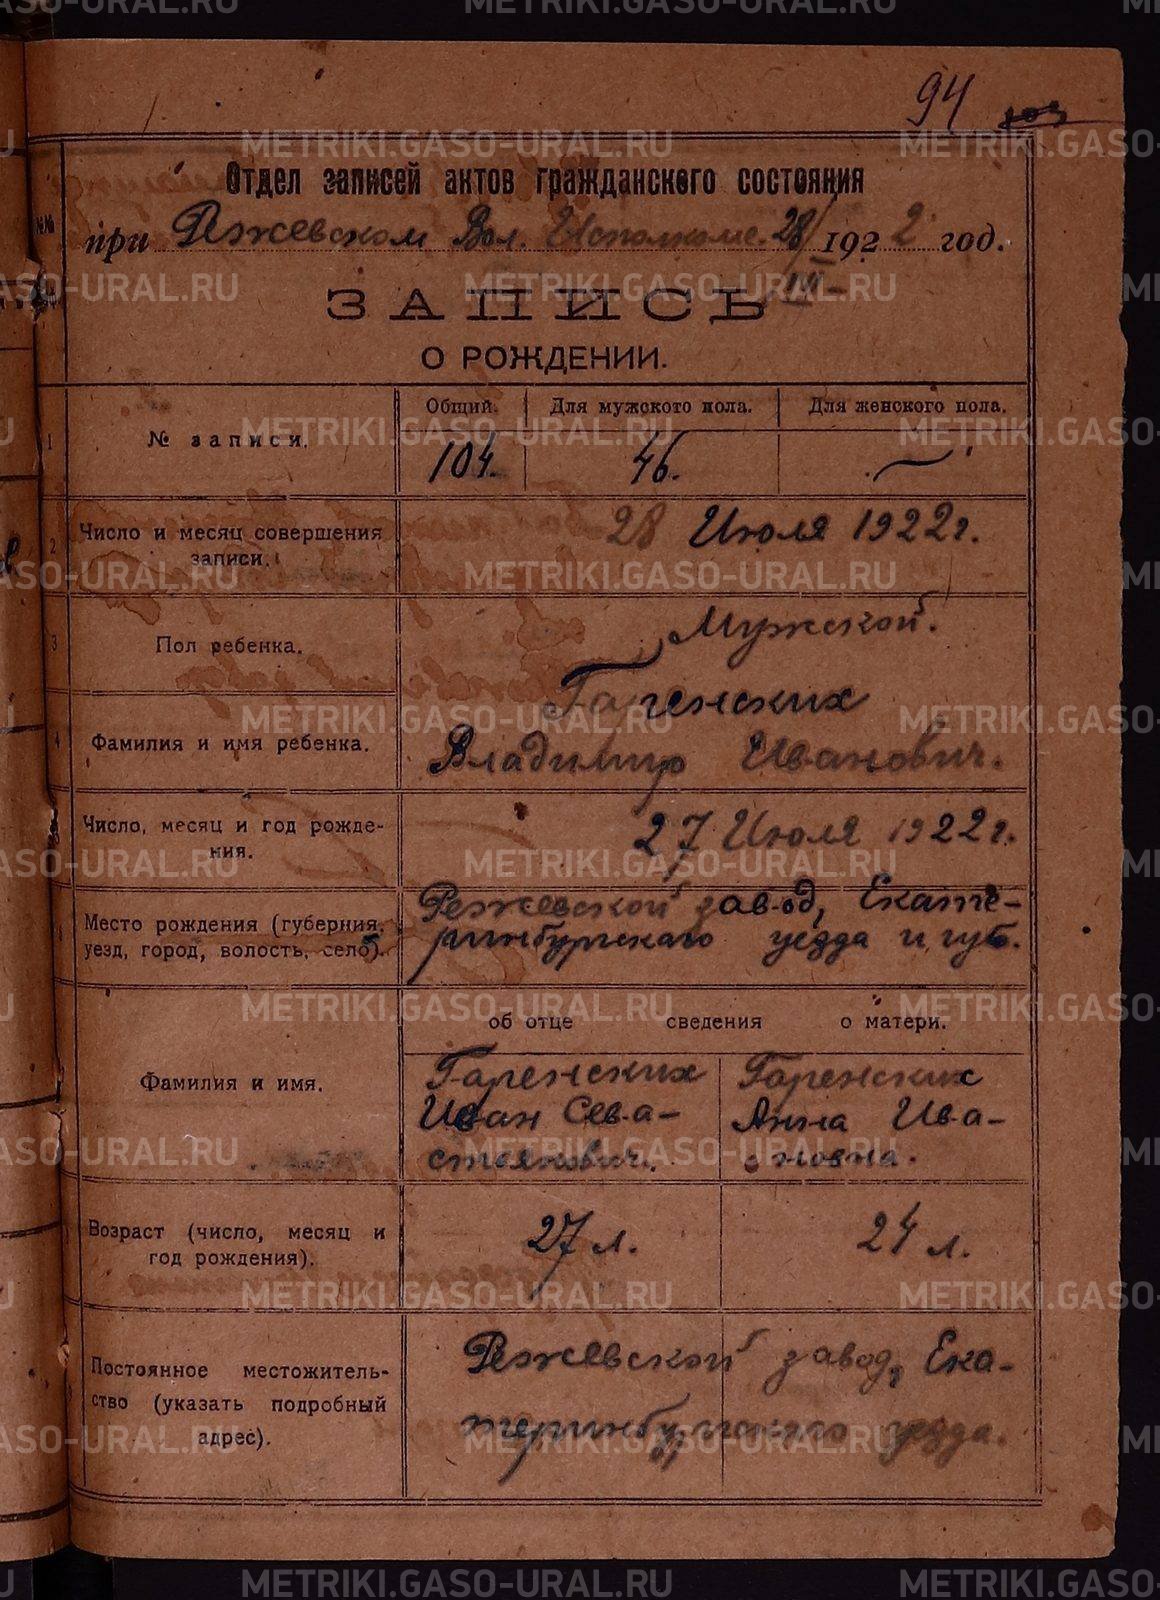 94
Отдел записей актов гражданского состояния
№№ при Режевском Вол. Исполкоме. 28/VII 1922 год.
ЗАПИСЬ
О РОЖДЕНИИ.
Общий. Для мужского пола. Для женского пола.
1 № записи. 104. 46. —
2 Число и месяц совершения записи. 28 Июля 1922 г.
3 Пол ребенка. Мужской.
Гаренских
4 Фамилия и имя ребенка. Владимир Иванович.
Число, месяц и год рожде-
ния. 27 Июля 1922 г.
Место рождения (губерния, Режевской завод, Екате-
уезд, город, волость, село). ринбургскаго уезда и губ.
об отце сведения о матери.
Фамилия и имя.
Гаренских
Иван Сева-
стьянович.
Гаренских
Анна Ива-
новна.
Возраст (число, месяц и
год рождения). 27 л. 24 л.
Постоянное местожитель-
ство (указать подробный
адрес).
Режевской завод, Ека-
теринбургскаго уезда.
METRIKI.GASO-URAL.RU